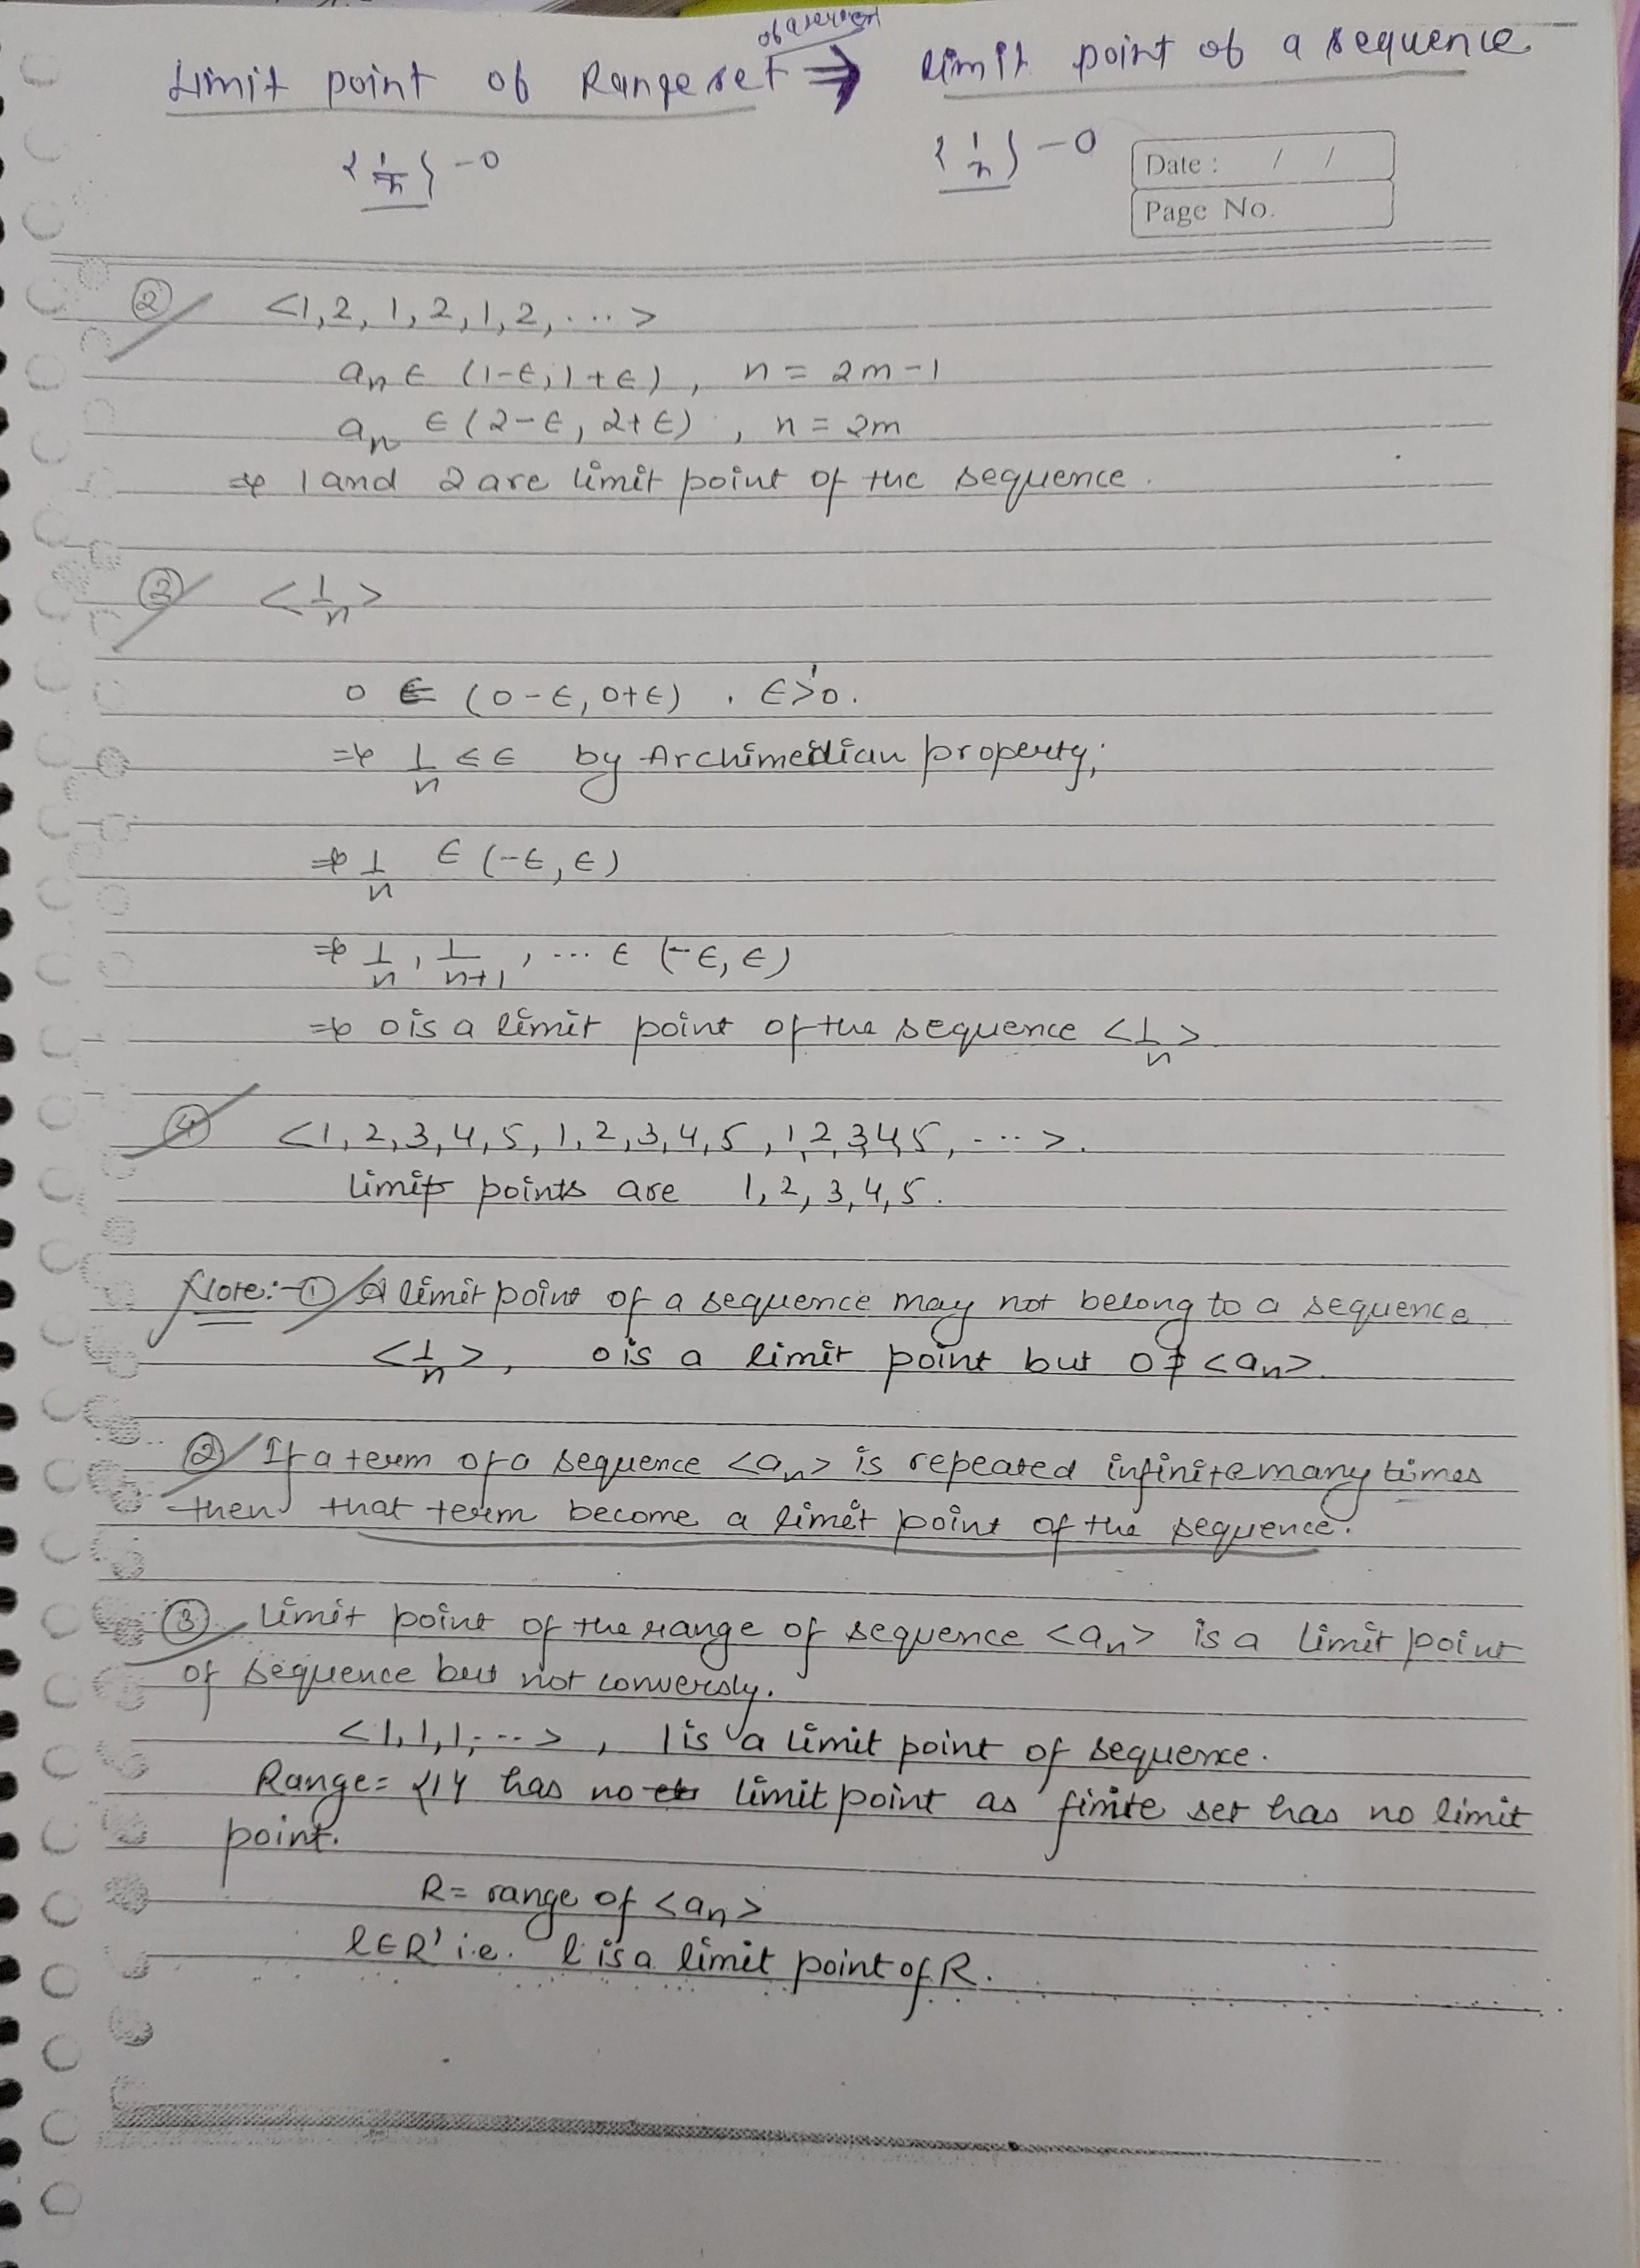 observation
Limit point of Range set ⇒ limit point of a sequence
{1/n} - 0 {1/n} - 0
Date : / /
Page No.
② <1, 2, 1, 2, 1, 2, ... >
aₙ ∈ (1-ϵ, 1+ϵ), n = 2m-1
aₙ ∈ (2-ϵ, 2+ϵ), n = 2m
⇒ 1 and 2 are limit point of the sequence.
③ <1/n>
0 ∈ (0-ϵ, 0+ϵ) , ϵ>0.
⇒ 1/n < ϵ by Archimedian property;
⇒ 1/n ∈ (-ϵ, ϵ)
⇒ 1/n, 1/n+1, ... ∈ (-ϵ, ϵ)
⇒ 0 is a limit point of the sequence <1/n>
④ <1, 2, 3, 4, 5, 1, 2, 3, 4, 5, 1, 2, 3, 4, 5, ... >.
limit points are 1, 2, 3, 4, 5.
Note:- ① A limit point of a sequence may not belong to a sequence.
<1/n>, 0 is a limit point but 0 ∉ <aₙ>.
② If a term of a sequence <aₙ> is repeated infinite many times
then that term become a limit point of the sequence.
③ Limit point of the range of sequence <aₙ> is a limit point
of sequence but not conversly.
<1, 1, 1, ... >, 1 is a limit point of sequence.
Range = {1} has no limit point as finite set has no limit
point.
R = range of <aₙ>
l ∈ R' i.e. l is a limit point of R.